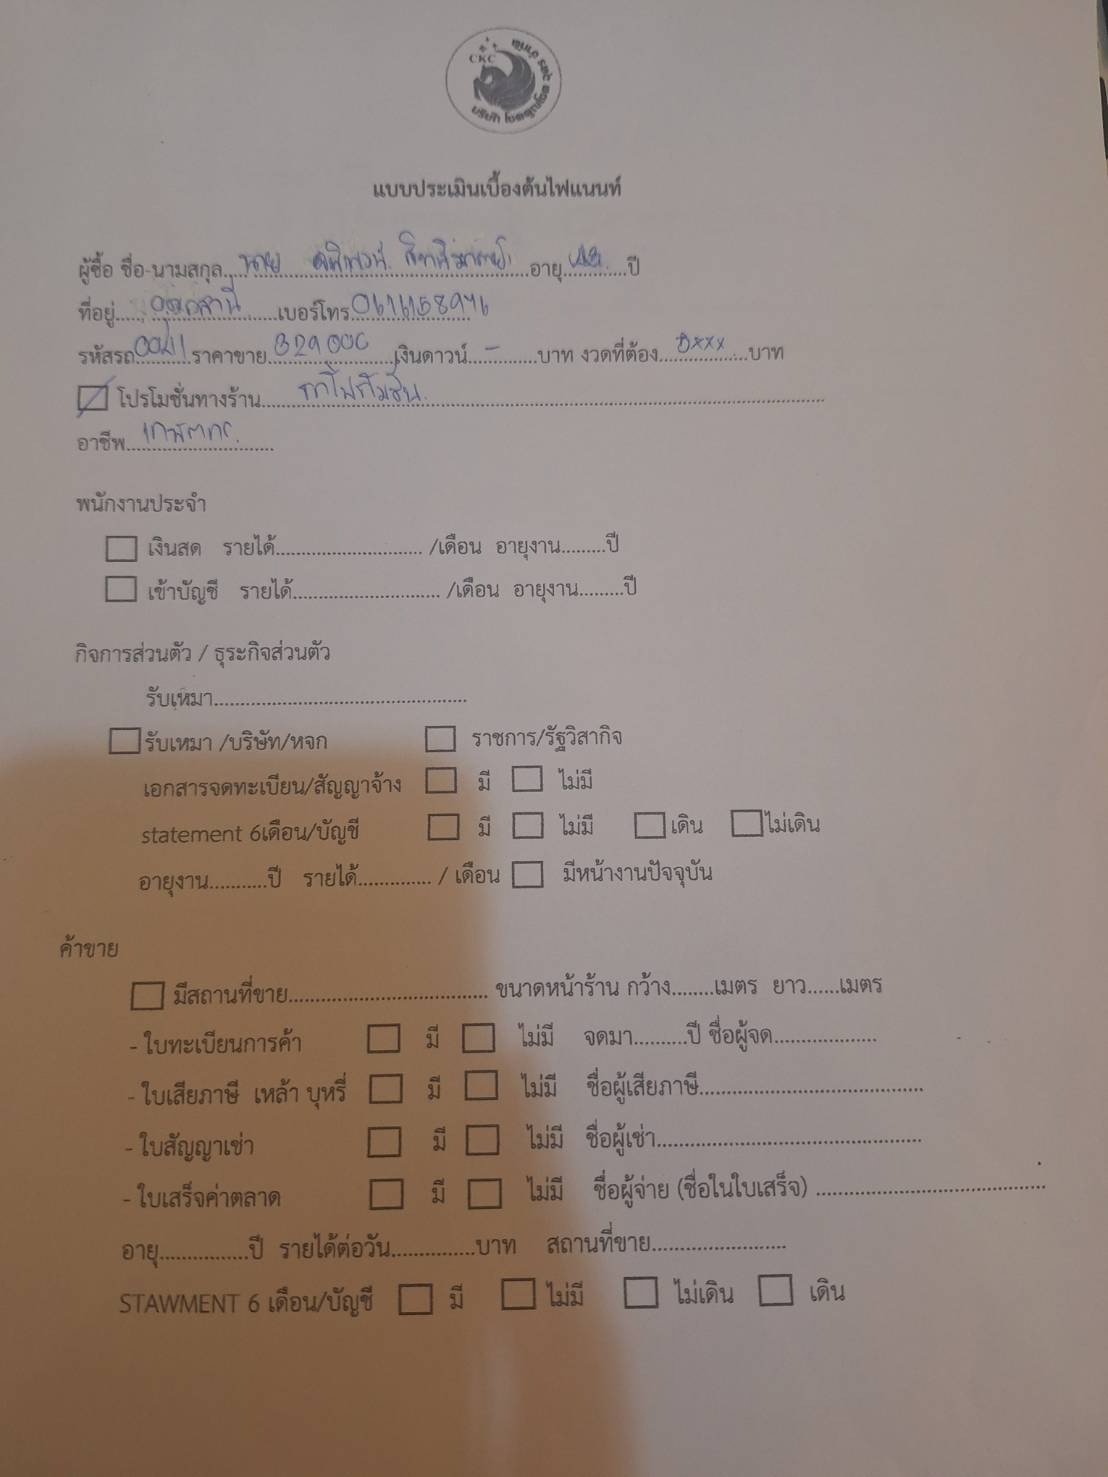 CKC
แบบประเมินเบื้องต้นไฟแนนท์
ผู้ซื้อ ชื่อ-นามสกุล..นาย..........อายุ..........ปี
ที่อยู่..............เบอร์โทร..0616158946
รหัสรถ..0041..ราคาขาย..329000..เงินดาวน์..-..บาท งวดที่ต้อง..8xxx..บาท
โปรโมชั่นทางร้าน..............
อาชีพ..เกษตกร..
พนักงานประจำ
เงินสด รายได้............................ /เดือน อายุงาน.........ปี
เข้าบัญชี รายได้............................ /เดือน อายุงาน.........ปี
กิจการส่วนตัว / ธุระกิจส่วนตัว
รับเหมา................................................
รับเหมา /บริษัท/หจก ราชการ/รัฐวิสากิจ
เอกสารจดทะเบียน/สัญญาจ้าง มี ไม่มี
statement 6เดือน/บัญชี มี ไม่มี เดิน ไม่เดิน
อายุงาน...........ปี รายได้.............. / เดือน มีหน้างานปัจจุบัน
ค้าขาย
มีสถานที่ขาย...................................... ขนาดหน้าร้าน กว้าง........เมตร ยาว......เมตร
- ใบทะเบียนการค้า มี ไม่มี จดมา..........ปี ชื่อผู้จด...................
- ใบเสียภาษี เหล้า บุหรี่ มี ไม่มี ชื่อผู้เสียภาษี..........................................
- ใบสัญญาเช่า มี ไม่มี ชื่อผู้เช่า..................................................
- ใบเสร็จค่าตลาด มี ไม่มี ชื่อผู้จ่าย (ชื่อในใบเสร็จ) ...........................................
อายุ.................ปี รายได้ต่อวัน................บาท สถานที่ขาย.........................
STAWMENT 6 เดือน/บัญชี มี ไม่มี ไม่เดิน เดิน